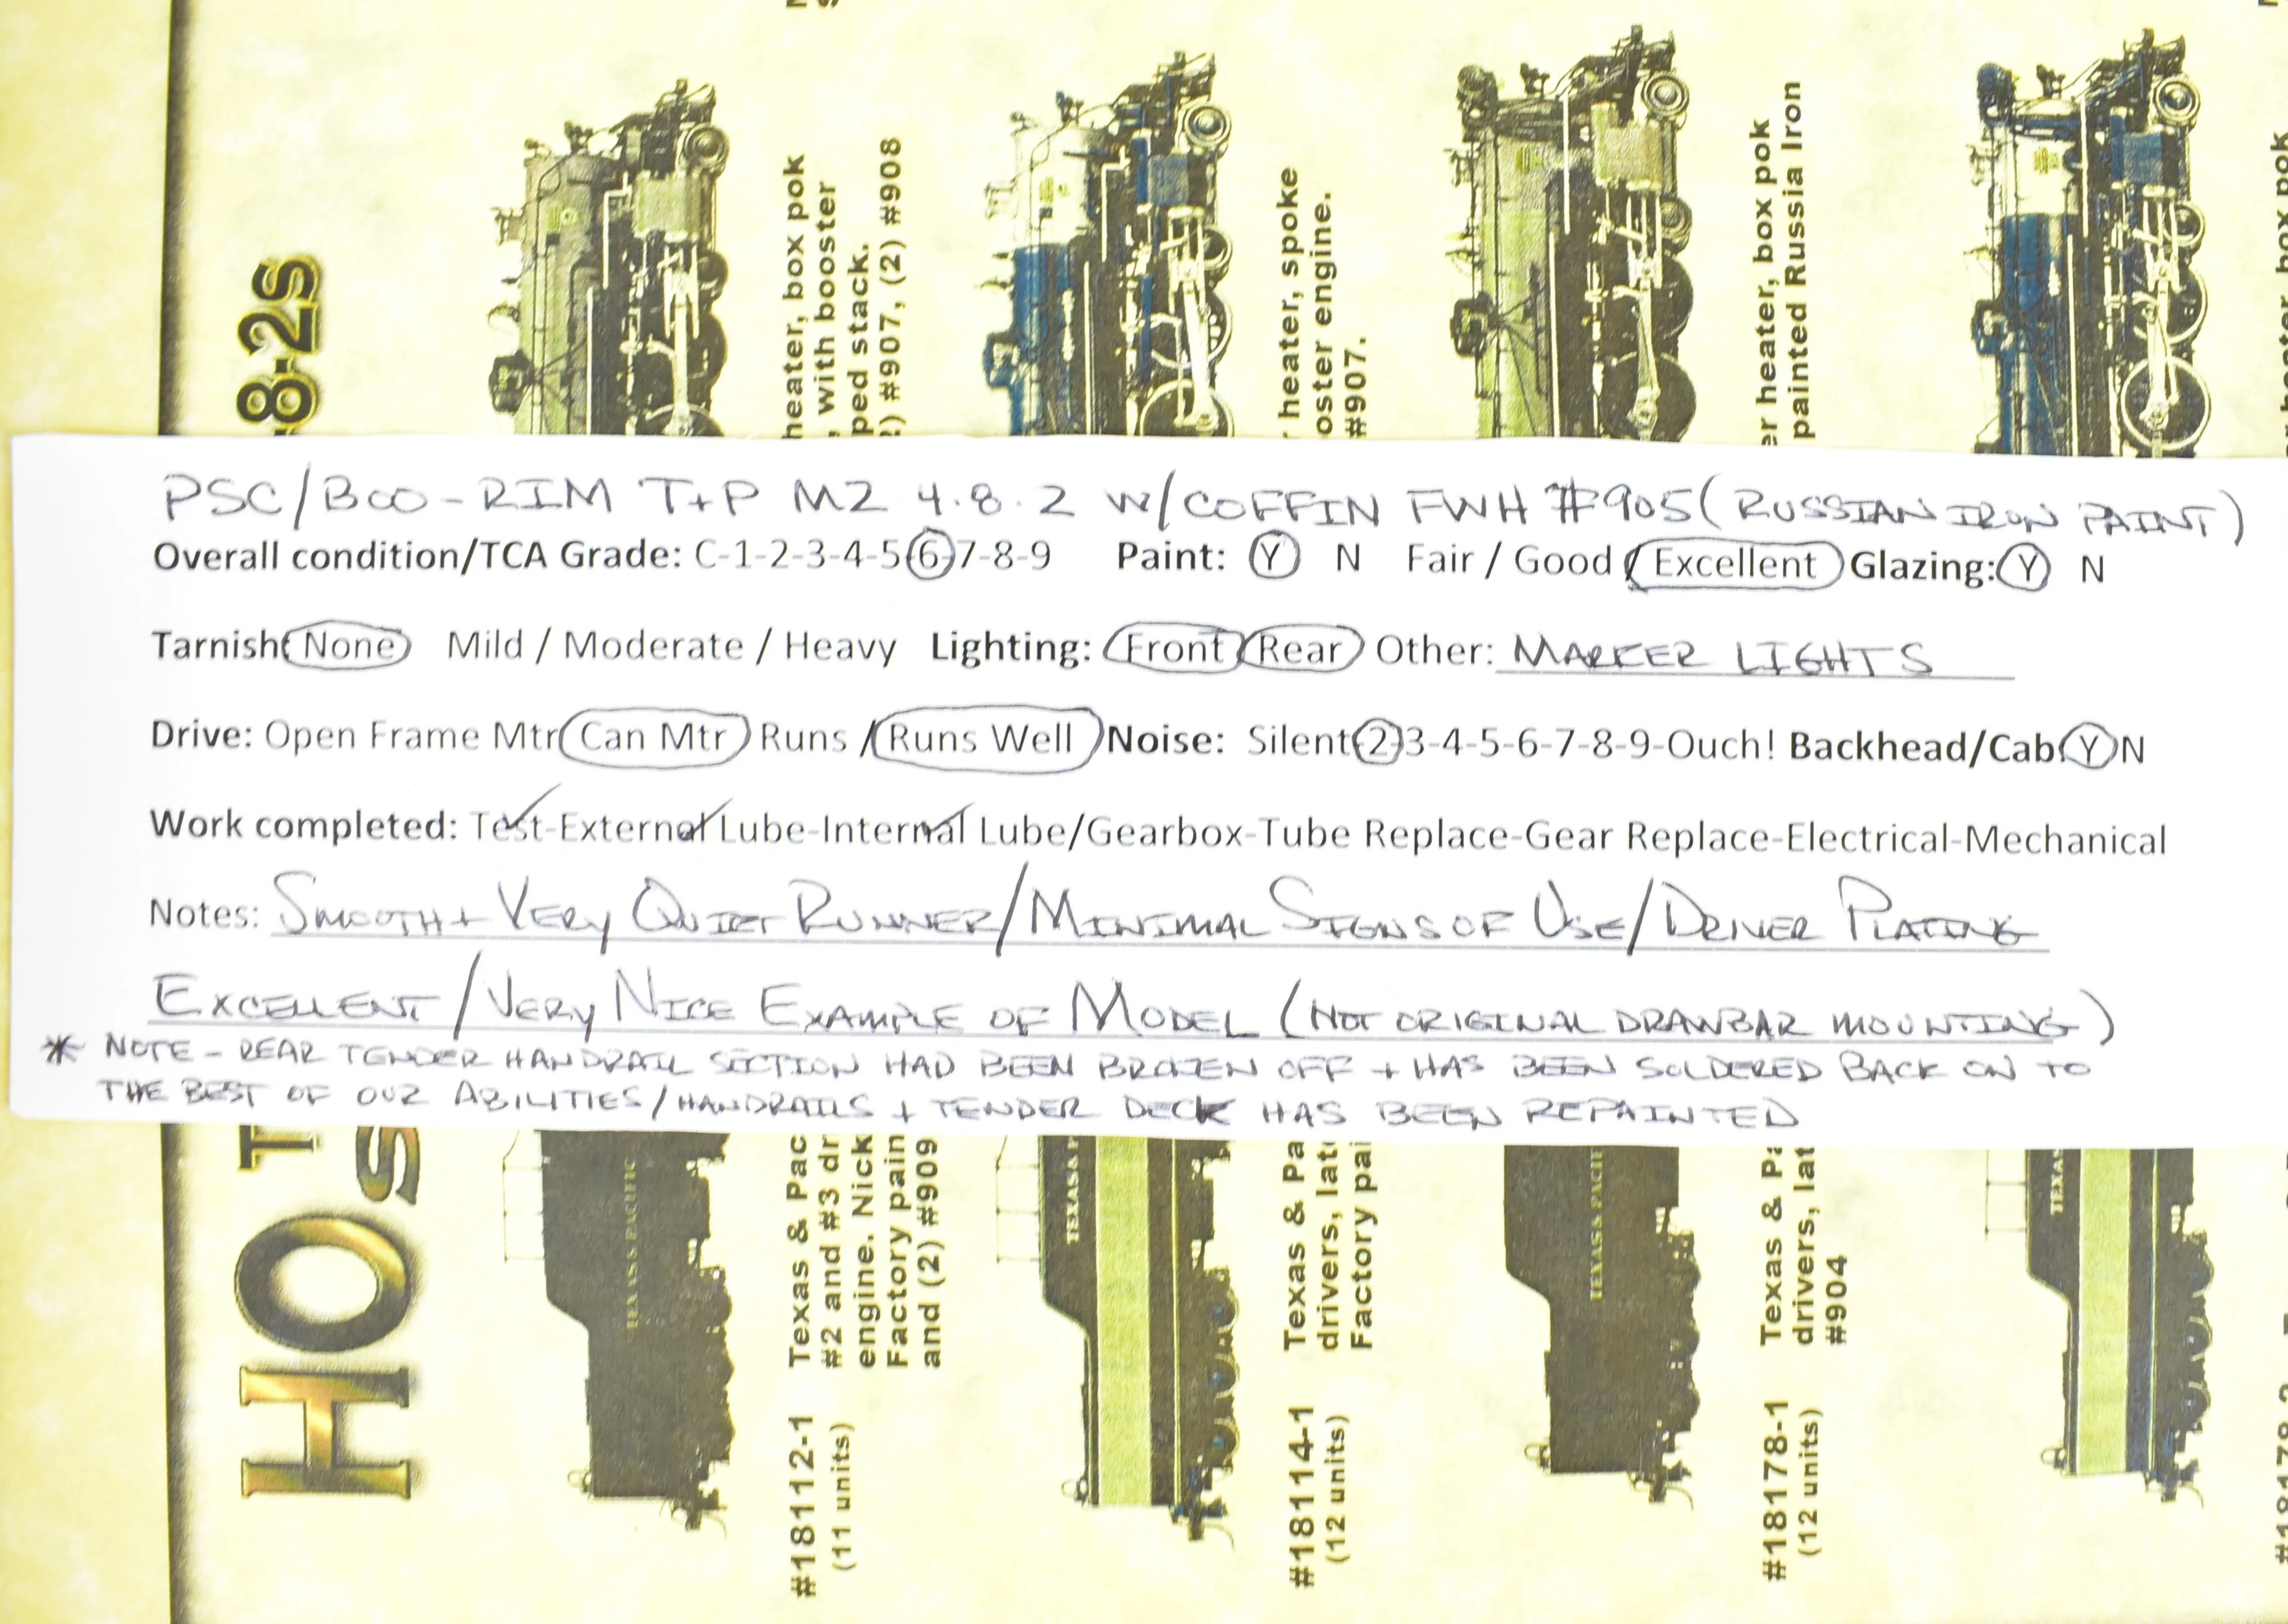 PSC/BOO-RIM T+P M2 4.8.2 W/COFFIN FWH #905 (RUSSIAN IRON PAINT)
Overall condition/TCA Grade: C-1-2-3-4-5-6-7-8-9 Paint: Y N Fair / Good / Excellent Glazing: Y N
Tarnish: None Mild / Moderate / Heavy Lighting: Front Rear Other: MARKER LIGHTS
Drive: Open Frame Mtr Can Mtr Runs / Runs Well Noise: Silent-2-3-4-5-6-7-8-9-Ouch! Backhead/Cab: Y N
Work completed: Test-External Lube-Internal Lube/Gearbox-Tube Replace-Gear Replace-Electrical-Mechanical
Notes: SMOOTH + VERY QUIET RUNNER/MINIMAL SIGNS OF USE/DRIVER PLATING
EXCELLENT/VERY NICE EXAMPLE OF MODEL (NOT ORIGINAL DRAWBAR MOUNTING)
* NOTE - REAR TENDER HANDRAIL SECTION HAD BEEN BROKEN OFF + HAS BEEN SOLDERED BACK ON TO
THE BEST OF OUR ABILITIES/HANDRAILS + TENDER DECK HAS BEEN REPAINTED
HO
8-2s
#18112-1 Texas & Pac
(11 units) #2 and #3 dr
engine. Nick
Factory pain
and (2) #909
heater, box pok
, with booster
ped stack.
) #907, (2) #908
TEXAS PACIFIC
#18114-1 Texas & Pa
(12 units) drivers, late
Factory pai
heater, spoke
oster engine.
#907.
#18178-1 Texas & Pa
(12 units) drivers, lat
#904
er heater, box pok
painted Russia Iron
TEXAS PACIFIC
TEXAS
#18178-2
heater, box pok